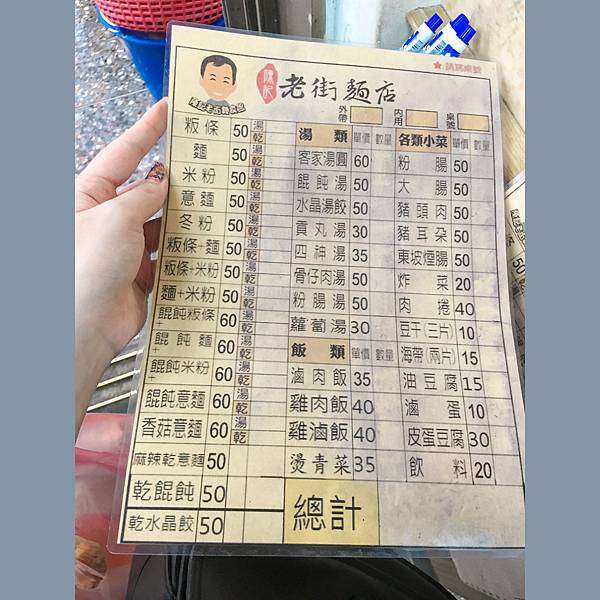 ★請寫桌號
陳記 老街麵店
陳記老街麵店
外帶 內用 桌號
粄條 50 湯 乾
麵 50 湯 乾
米粉 50 湯 乾
意麵 50 湯 乾
冬粉 50 湯 乾
粄條+麵 50 湯 乾
粄條+米粉 50 湯 乾
麵+米粉 50 湯 乾
餛飩粄條 60 湯 乾
餛飩麵 60 湯 乾
餛飩米粉 60 湯 乾
餛飩意麵 60 湯 乾
香菇意麵 60 湯 乾
麻辣乾意麵 50
乾餛飩 50
乾水晶餃 50
湯類 單價 數量
客家湯圓 60
餛飩湯 50
水晶湯餃 50
貢丸湯 30
四神湯 35
骨仔肉湯 50
粉腸湯 50
蘿蔔湯 30
飯類 單價 數量
滷肉飯 35
雞肉飯 40
雞滷飯 40
燙青菜 35
總計
各類小菜 單價 數量
粉腸 50
大腸 50
豬頭肉 50
豬耳朵 50
東坡煙腸 50
炸菜 20
肉捲 40
豆干(三片) 10
海帶(兩片) 15
油豆腐 15
滷蛋 10
皮蛋豆腐 30
飲料 20